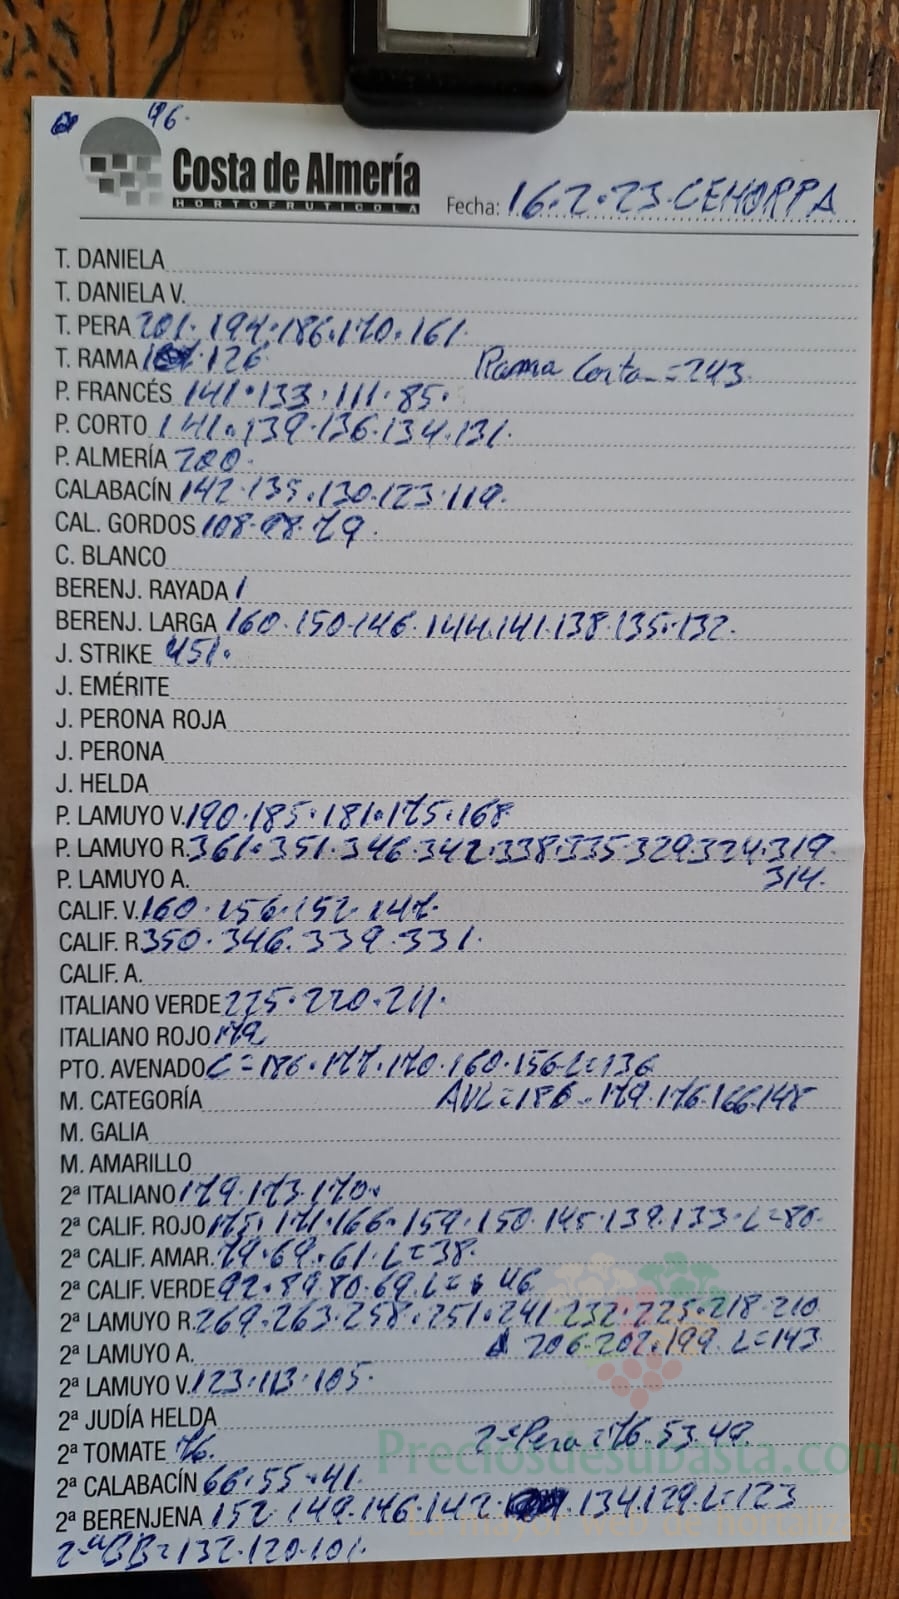 96.
Costa de Almería
HORTOFRUTICOLA
Fecha: 16.2.23.CEHORPA
T. DANIELA
T. DANIELA V.
T. PERA 201.194.186.170.161.
T. RAMA 126 Rama Corta=243
P. FRANCÉS 141.133.111.85.
P. CORTO 141.139.136.134.131.
P. ALMERÍA 200.
CALABACÍN 142.135.130.123.119.
CAL. GORDOS 108.98.79.
C. BLANCO
BERENJ. RAYADA 1
BERENJ. LARGA 160.150.146.144.141.138.135.132.
J. STRIKE 451.
J. EMÉRITE
J. PERONA ROJA
J. PERONA
J. HELDA
P. LAMUYO V. 190.185.181.175.168
P. LAMUYO R. 361.351.346.342.338.335.329.324.319.
P. LAMUYO A. 314.
CALIF. V. 160.156.152.147.
CALIF. R 350.346.339.331.
CALIF. A.
ITALIANO VERDE 225.220.211.
ITALIANO ROJO 179
PTO. AVENADO C=186.177.170.160.156.L=136
M. CATEGORÍA AVL=186.179.176.166.148
M. GALIA
M. AMARILLO
2ª ITALIANO 179.173.170.
2ª CALIF. ROJO 175.171.166.159.150.145.139.133.L=80.
2ª CALIF. AMAR. 79.69.61.L=38.
2ª CALIF. VERDE 92.89.80.69.L=46
2ª LAMUYO R. 269.263.258.251.241.232.225.218.210
2ª LAMUYO A. 206.202.199.L=143
2ª LAMUYO V. 123.113.105.
2ª JUDÍA HELDA
2ª TOMATE 76. 2ªPera=76.53.49.
Preciosdesubasta.com
2ª CALABACÍN 66.55.41.
2ª BERENJENA 152.149.146.142.134.129.L=123
La mayor web de hortalizas
2ªBB=132.120.101.